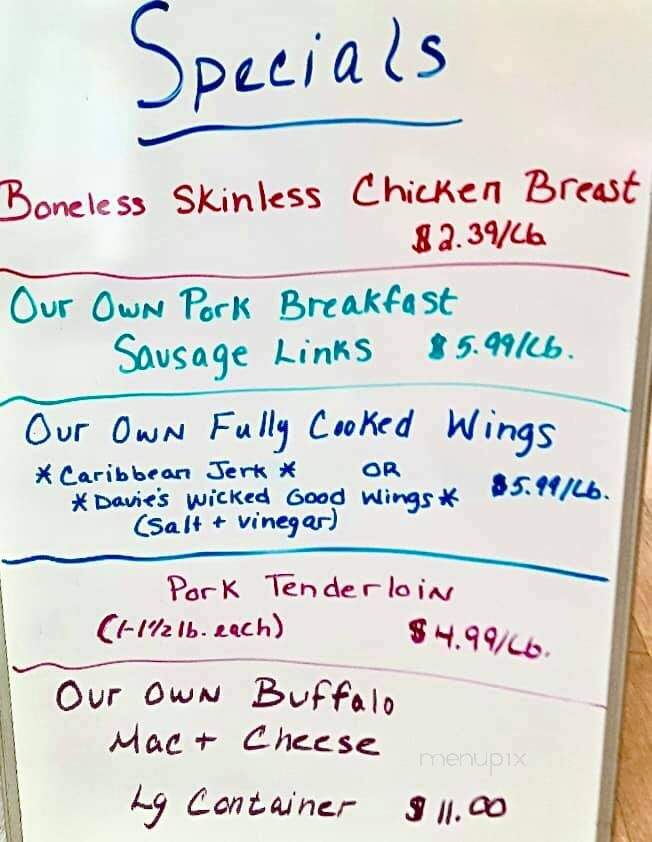 Specials
Boneless Skinless Chicken Breast
$2.39/Lb
Our Own Pork Breakfast
Sausage Links $5.99/Lb.
Our Own Fully Cooked Wings
*Caribbean Jerk* OR
*Davie's Wicked Good Wings* $5.99/Lb.
(Salt + vinegar)
Pork Tenderloin
(1-1½ lb. each) $4.99/Lb.
Our Own Buffalo
Mac + Cheese
menupix
Lg Container $11.00